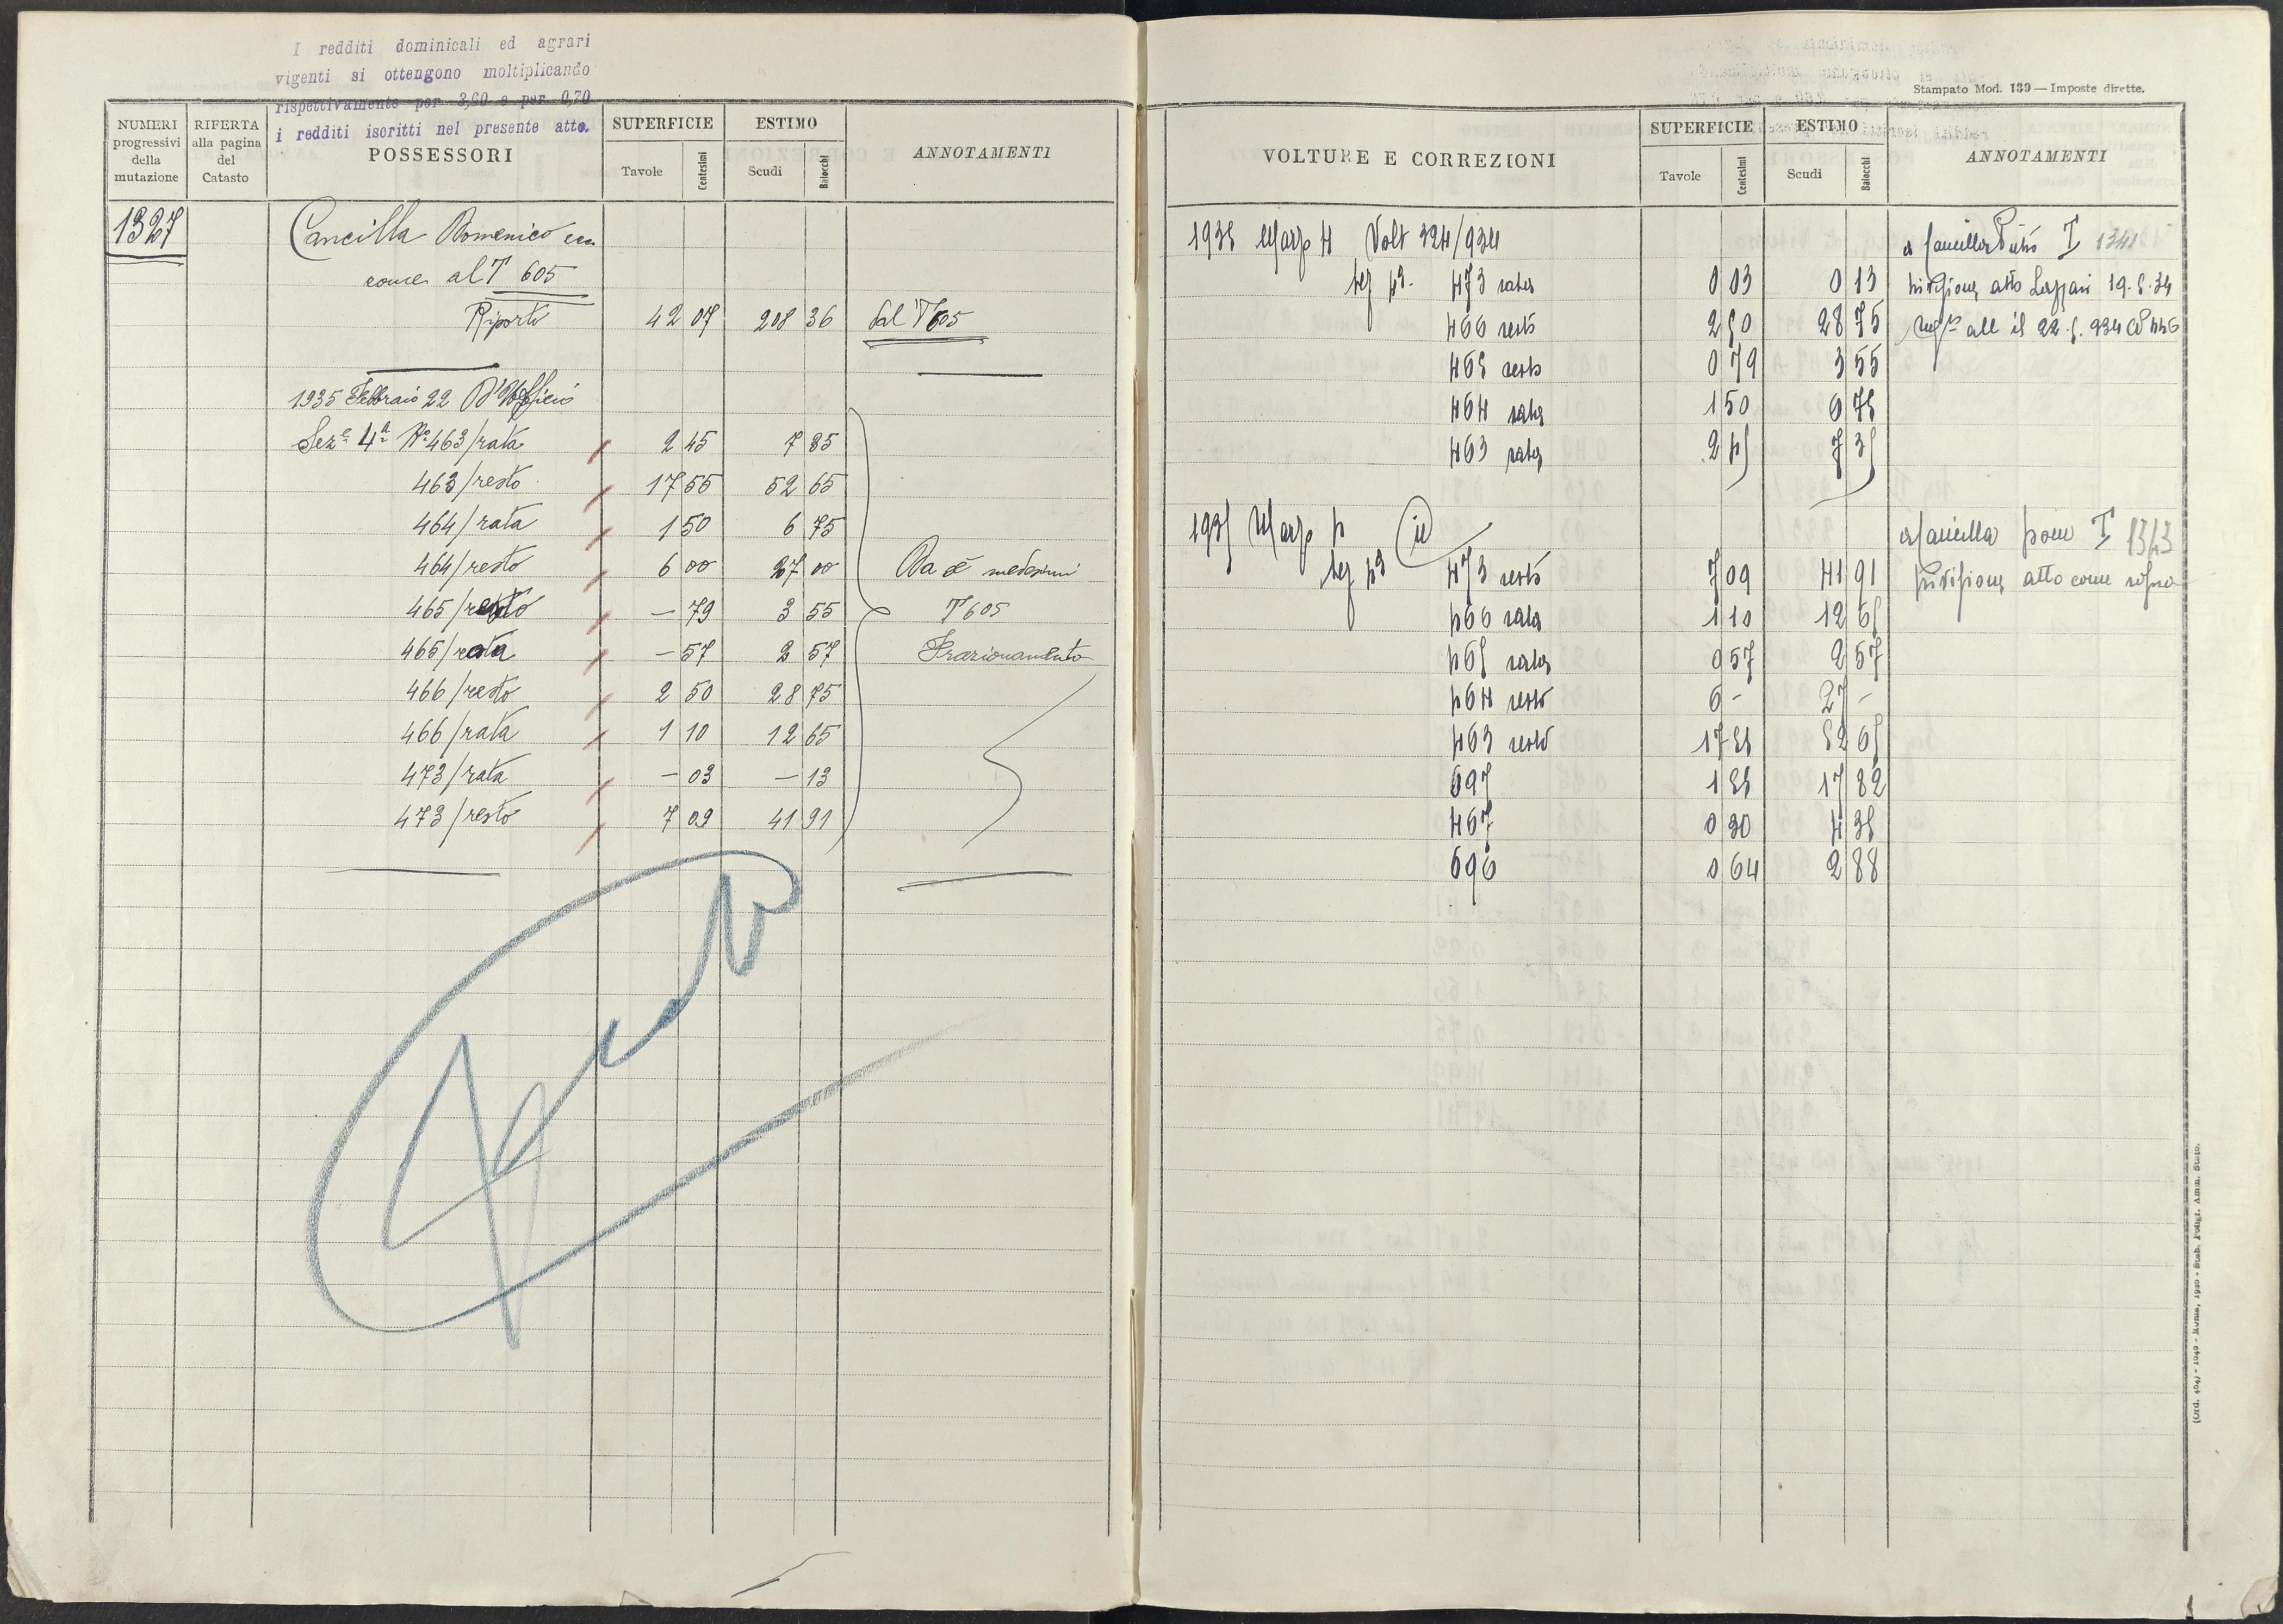 I redditi dominicali ed agrari
vigenti si ottengono moltiplicando
rispettivamente per 3,60 e per 0,70
i redditi iscritti nel presente atto.
NUMERI progressivi della mutazione
RIFERTA alla pagina del Catasto
POSSESSORI
SUPERFICIE
Tavole Centesimi
ESTIMO
Scudi Baiocchi
ANNOTAMENTI
1327 Cancilla Domenico ecc
come al T 605
Riporto 42 07 208 36 dal T 605
1935 Febbraio 22 D'Ufficio
Sez.e 4a No 463/rata 2 45 7 35
463/resto 17 55 52 65
464/rata 1 50 6 75
464/resto 6 00 27 00 Da è medesimi
465/resto — 79 3 55 T 605
465/rata — 57 2 57 Frazionamento
466/resto 2 50 28 75
466/rata 1 10 12 65
473/rata — 03 — 13
473/resto 7 09 41 91
Stampato Mod. 139 — Imposte dirette.
VOLTURE E CORREZIONI
SUPERFICIE
Tavole Centesimi
ESTIMO
Scudi Baiocchi
ANNOTAMENTI
1935 Marzo 4 Volt 324/934 a Cancilla Pietro T 1341
Sez 4a 473 rata 0 03 0 13 Divisione atto 19.5.34
466 resto 2 50 28 75 all il 22.5.934
465 resto 0 79 3 55
464 rata 1 50 6 75
463 rata 2 45 7 35
1935 Marzo 4 a Cancilla T 1343
Sez 4a 473 resto 7 09 41 91 Divisione atto come sopra
466 rata 1 10 12 65
465 rata 0 57 2 57
464 resto 6 - 27 -
463 resto 17 55 52 65
697 1 55 17 82
467 0 30 4 35
696 0 64 2 88